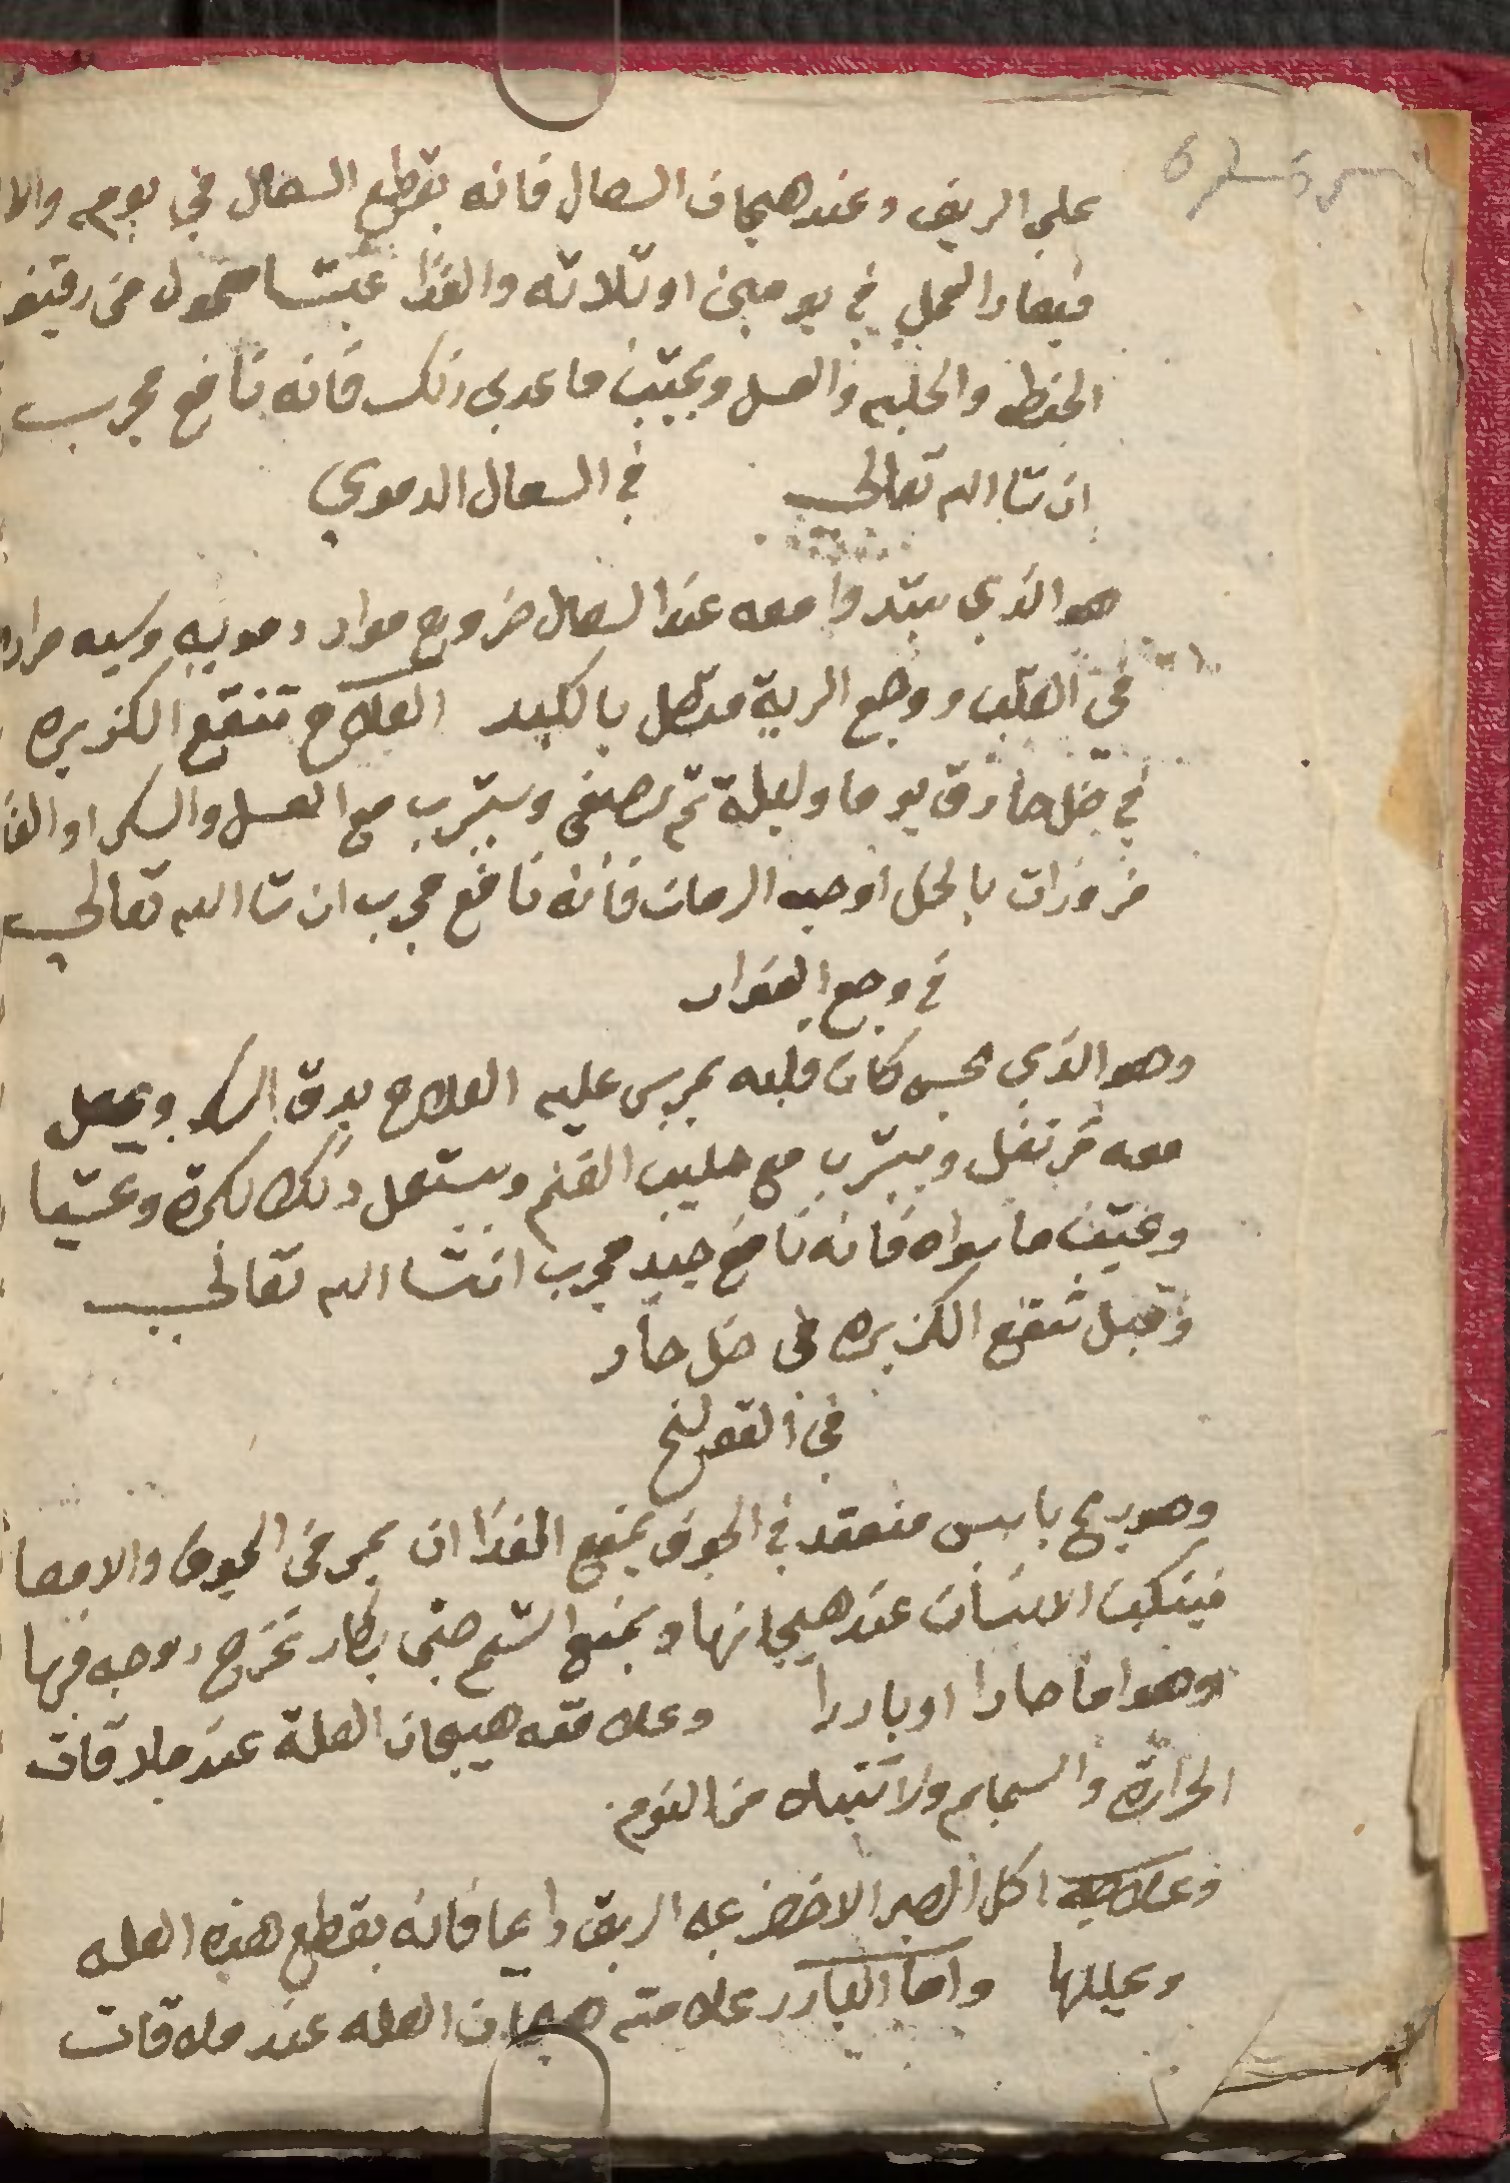 علي الريق وعند هيجان السعال فانه يقطع السعال في يوم والا
فيعاد العمل في يومين او ثلاثه والغذا عيشا معمول من دقيق
الحنطه والحلبه والعسل ويجتنب ما عدي ذلك فانه نافع مجرب
ان شا الله تعالي في السعال الدموي
هو الذي يبتدوا معه عند السعال خروج مواد دمويه وسببه حراره
في القلب ووجع الرية متصل بالكبد العلاج تنقع الكزبره
في خل حاذق يوما وليلة ثم يصفي ويشرب مع العسل والسكر او الغذا
مزورات بالخل او حب الرمان فانه نافع مجرب ان شا الله تعالي
في وجع الفواد
وهو الذي يحس كان قلبه يمرس عليه العلاج يدق السكر ويجعل
معه قرنفل ويشرب مع حليب الغنم ويستعمل ذلك بكرة وعشيا
ويجتنب ما سواه فانه نافع جيد مجرب انشا الله تعالي
وقيل تنقع الكزبره في خل حار
في القولنج
وهو ريح يابس منعقد في الجوف يمنع الغذا ان يمر في الجوف والامعا
فينكب الانسان عند هيجانها ويمنع الشم حتي يكاد تخرج روحه فيها
وهو اما حارا او باردا وعلامته هيجان العلة عند ملاقات
الحرارة والسمايم ولا نتباه من النوم
وعلاجه اكل الصبر الاخضر علي الريق دايما فانه يقطع هذه العله
ويحللها واما البارد علامته هيجان العله عند ملاقات